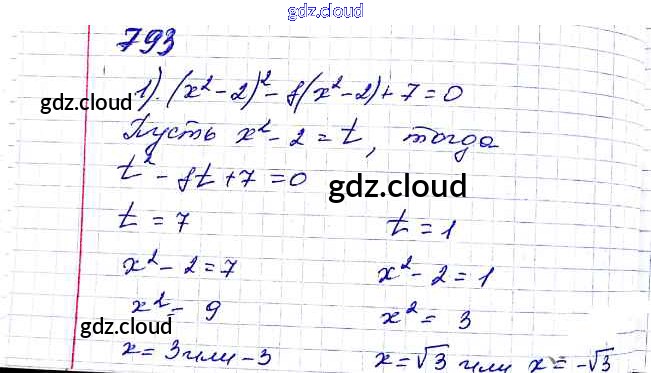 gdz.cloud
793
1). (x² - 2)² - 8(x² - 2) + 7 = 0
gdz.cloud
Пусть x² - 2 = t, тогда
t² - 8t + 7 = 0
gdz.cloud
t = 7 t = 1
x² - 2 = 7 x² - 2 = 1
x² = 9 x² = 3
gdz.cloud
x = 3 или -3 x = √3 или x = -√3